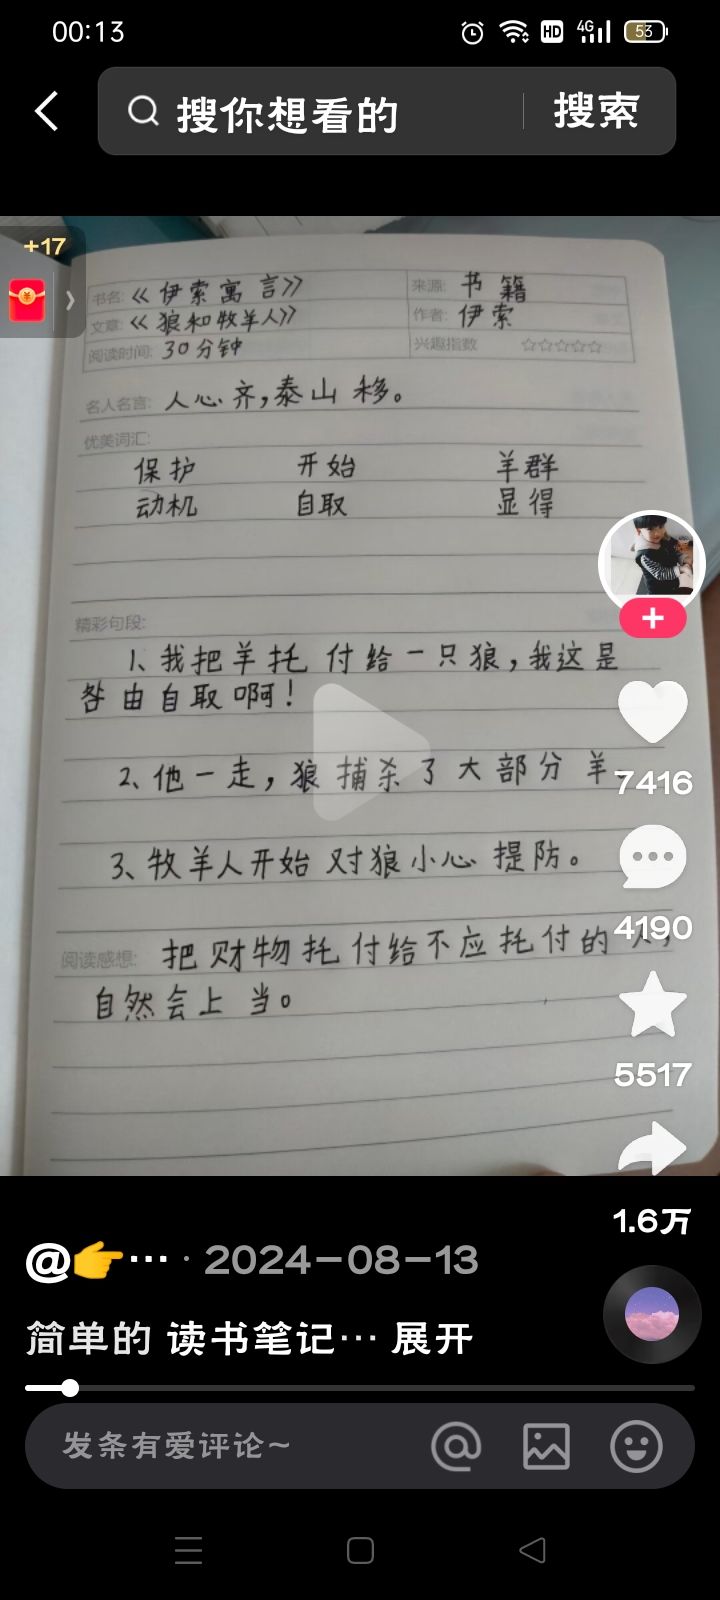 00:13
HD 4G 53
搜你想看的 搜索
+17
书名:《伊索寓言》 来源: 书籍
文章:《狼和牧羊人》 作者: 伊索
阅读时间: 30分钟 兴趣指数 ☆☆☆☆☆
名人名言: 人心齐,泰山移。
优美词汇:
保护 开始 羊群
动机 自取 显得
精彩句段:
1、我把羊托付给一只狼,我这是
咎由自取啊!
2、他一走,狼捕杀了大部分羊
7416
3、牧羊人开始对狼小心提防。
4190
阅读感想: 把财物托付给不应托付的人,
自然会上当。
5517
1.6万
@👉… · 2024-08-13
简单的 读书笔记… 展开
发条有爱评论~